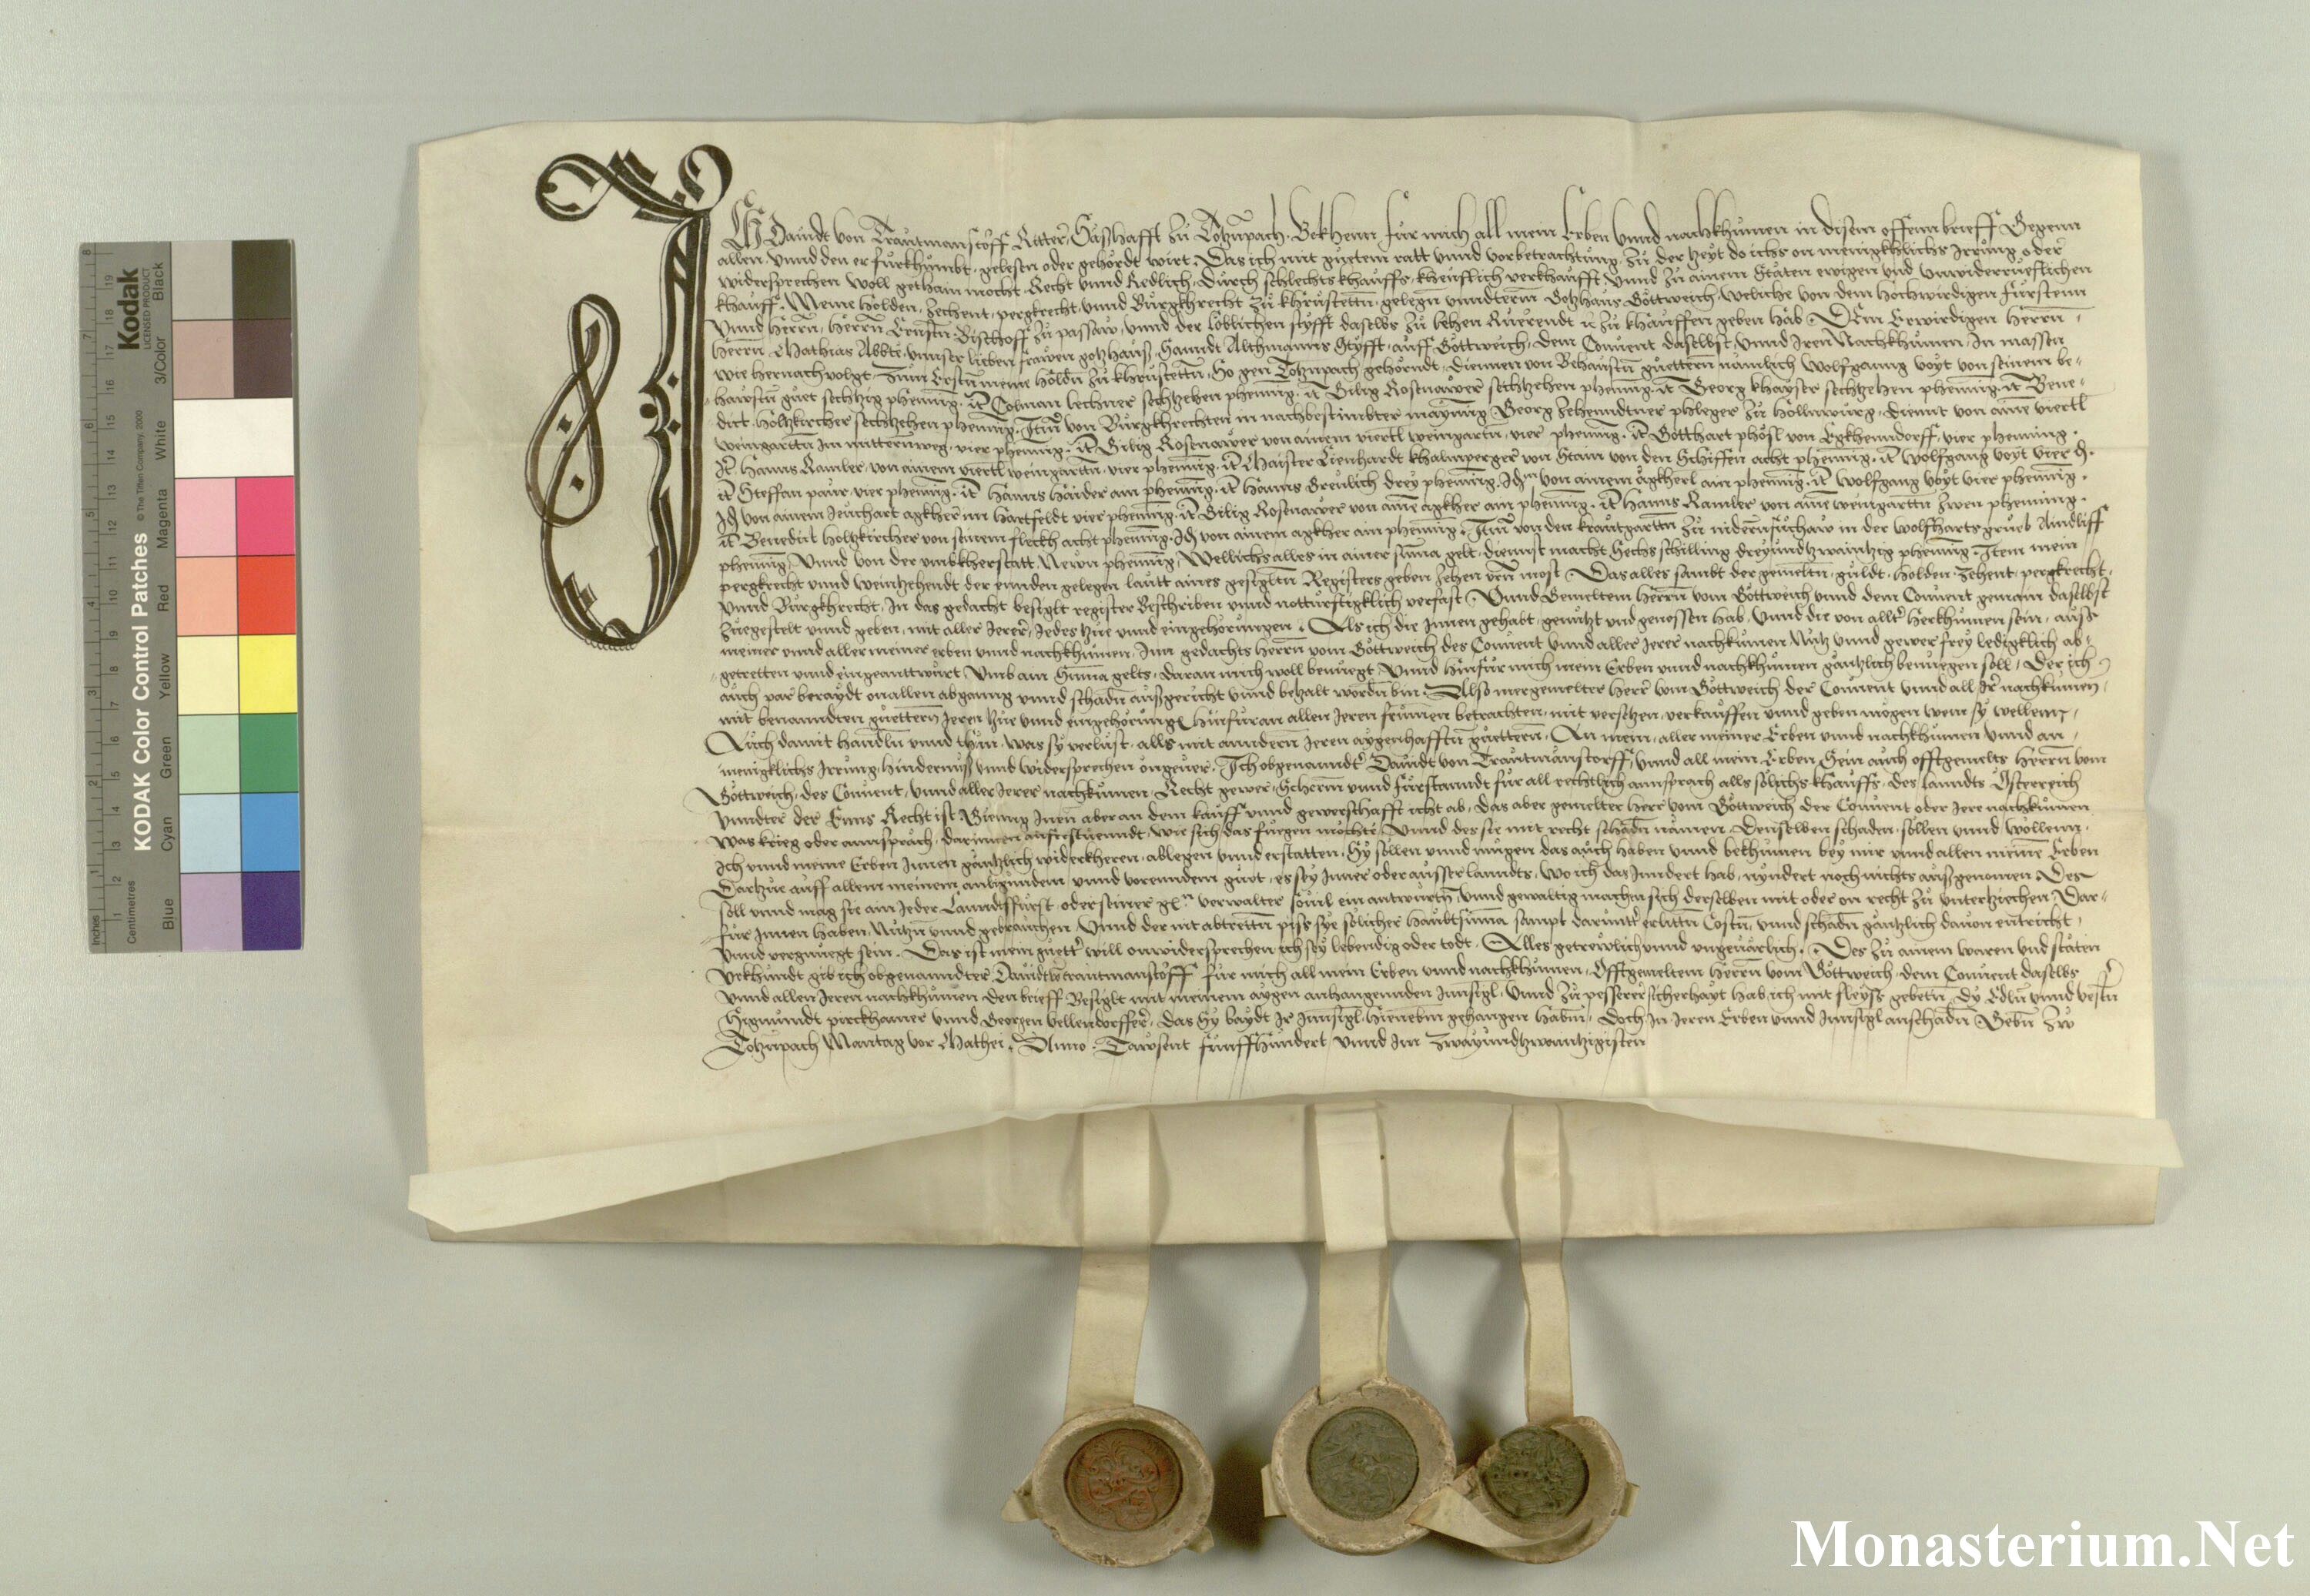 ICH Dauidt von Trautmanstorff Ritter, Säßhafft zu Totznpach, Bekhenn für mich all mein Erben vnnd nachkhumen in disem offenn brieff Gegenn
allen vnnd den er fürkhumbt, gelesen oder gehördt wirt, Das ich mit guetem ratt vnnd vorbetrachtung, zu der zeyt do ichs on menigkhlichs Irrung oder
widersprechen woll gethain mocht, Recht vnnd Redlich, durch schlechts khauffs, kheufflich verkhaufft, vnnd zu ainem Stäten ewigen vnd vnwiderrueflichen
khauff, Meine holden, zehent, pergkrecht, vnnd Burgkhrecht zu khrustettn, gelegn vnndterm Gotzhaus Göttweich, weliche von dem hochwirdigen Fürstenn
vnnd herrn, herrn Ernstn Bischoff zu passaw, vnnd der löblichen styfft daselbs zu lehen Ruerendt zu khauffen geben hab Dem Erwirdigen herrn,
herrn Mathias Abbte, vnnser lieben frawen gotzhauß, Sanndt Althmanns Styfft, auff Göttweich, dem Conuent daselbst, vnnd Iren Nachkhumen, In massen
wie hernach volgt, Zum Erstn meine holdn zu khrustettn, So gen Totznpach gehörndt, Diennen von Behaustn guettern nämlich Wolfganng voyt von seinem be-
haustn guet sechtzig phennig, it Colman lechner sechtzehen phennig, it Gilig Rosenawer sechtzehen phennig, it Georg khayser sechtzehen phennig, it Bene-
dict holtzkircher sechtzehen phennig, Item von Burgkhrechten in nachbestimbter maynung Georg zehenndtner phleger zu hollnwurg, diennt von aine viertl
weingartn im mitternweg, vier phennig, it Gilig Rosenawer von ainem viertl weingartn, vier phennig, it Gotthart phösl von Egkhenndorff, vier phennig,
it Hanns Ramler, von ainem viertl weingartn, vier phennig, it Maister Lienhardt khalmperger von Stain von den Schiffen acht phennig, it Wolfgang voyt vier d,
it Steffan paur, vier phennig, it Hanns Haider ain phennig, it Hanns Greulich drey phennig, Idm von ainem ägkherl ain phennig, it Wolfgang voyt vier phennig,
Id von ainem Jeuchart agkher im hartfeldt vier phennig, it Gilig Rosenawer von aine agkher ain phennig, it Hanns Ramler von aine weingarttn zwen phennig,
it Benedict holtzkircher von seinem fleckh acht phennig, Id von ainem agkher ain phennig, Item von den krautgartn zu nidernfuchaw in der wolfhartsgrueb Aindliff
phennig, vnnd von der vmbkherstatt, Newn phennig, Wellichs alles in ainer suma gelt, diennst macht Sechs schilling dreyundtzwaintzig phennig, Item mein
pergkrecht vnnd weintzehendt der ennden gelegen lautt aines gesigltn Registers geben zehen vrn most Das alles sambt der gemeltn, güldt, holden, zehent, pergkrecht,
vnnd Burgkhrecht, In das gedacht besiglt register Beschriben vnnd notturfftigklich verfast Vnnd Gemeltem herrn vom Göttweich vnnd dem Conuent gemain daselbst
zuegestelt vnnd geben, mit aller Jerer, Jedes zue vnnd eingehörungen, Als ich die Innen gehabt, genützt vnd genossen hab, vnnd die von allter herkhumen sein, auss
meiner vnnd aller meiner erben vnnd nachkhumen, Inn gedachts herrn vom Göttweich des Conuent vnnd aller Jerer nachkumen Nutz vnnd gewer frey ledigklich ab-
getretten vnnd eingeanntwurt, Vmb ain Summa gelts, daran mich woll benuegt, Vnnd hinfür mich mein Erben vnnd nachkhumen gäntzlich benuegen soll, Der ich
auch par beraydt on allen abganng vnnd schadn außgericht vnnd bezalt wordn bin, Also mergemelter herr vom Göttweich der Conuent vnnd all Ir nachkumen,
mit benanndten guettern Jeren zue vnnd eingehörung hinfüran allen Jeren frumen betrachten, mit versetzen, verkauffen vnnd geben mögen wem sy wellenn,
Auch damit handln vnnd thun, was sy verlust, alls mit anndern Jeren aygenhafftn guettern, An mein, aller meiner Erben vnnd nachkhumen vnnd an
menigklichs Irrung, hindernuß vnnd widersprechen ongeuer, Ich obgenanndter Dauidt von Trautmanstorff, vnnd all mein Erben Sein auch offtgemelts herrn vom
Göttweich, des Conuent, vnnd aller Jerer nachkumen, Recht gewer, Scherm vnnd Fürstanndt für all rechtlich annsprach alls solichs khauffs, des lanndts Österreich
vnndter der Enns Recht ist, Gienng Inen aber an dem kauff vnnd gewerschafft icht ab, das aber gemelter herr vom Göttweich der Conuent oder Jere nachkumen
was krieg oder annsprach, darinnen auferstuenndt, wie sich das fuegen möchte, Vnnd des sie mit recht schadn namen, Denselben schaden, sollen vnnd wollenn,
Ich vnnd meine Erben Innen gäntzlich widerkheren, ablegen vnnd erstatten, Sy sollen vnnd mugen das auch haben vnnd bekhumen bey mir vnnd allen meine Erben
Dartzue auff allem meinem anligundem vnnd varenndem guet, es sey Inner oder ausser lanndts, wo ich das Indert hab, nyndert noch nichts außgenomen Des
soll vnnd mag sie ain Jeder Lanndssfürst oder seiner gn verwalter souil ein antwurtn, vnnd gewaltig machen sich derselben mit oder on recht zu vntertziechen, Dar-
für Innen haben, Nutzn vnnd gebrauchen, Vnnd der nit abtrettn piss sye solicher haubtsuma sampt darunter erlittn Costn, vnnd schadn gäntzlich dauon entricht,
vnnd vergnuegt sein, Das ist mein guetter will on widersprechen ich sey lebendig oder todt, Alles getrewlich vnnd vngeuärlich, Des zu ainem waren vnd stäten
Vrkhundt gib ich obgenanndter Dauidt v Trautmanstorff für mich all mein Erben vnnd nachkhumen, Offtgemeltem herrn vom Göttweich, dem Conuent daselbs
vnnd allen Jeren nachkhumen den brieff Besiglt mit meinem aygen anhangennden Innsigl, Vnnd zu pesserer sicherhayt hab ich mit fleyss gebetn Dy Edln vnnd vestn
Sigmundt pirckhamer vnnd Georgen Vellendorffer, das Sy bayde Ir Innsigl, hienebm gehangen habm, Doch In Jeren Erben vnnd Innsigl anschadn Gebn zw
Totznpach Mantag vor Mathei, Anno, Tawsent funffhundert vnnd Im Zwayundtzwantzigisten
Kodak
LICENSED PRODUCT
KODAK Color Control Patches
© The Tiffen Company, 2000
Blue Cyan Green Yellow Red Magenta White 3/Color Black
Inches
Centimetres
Monasterium.Net